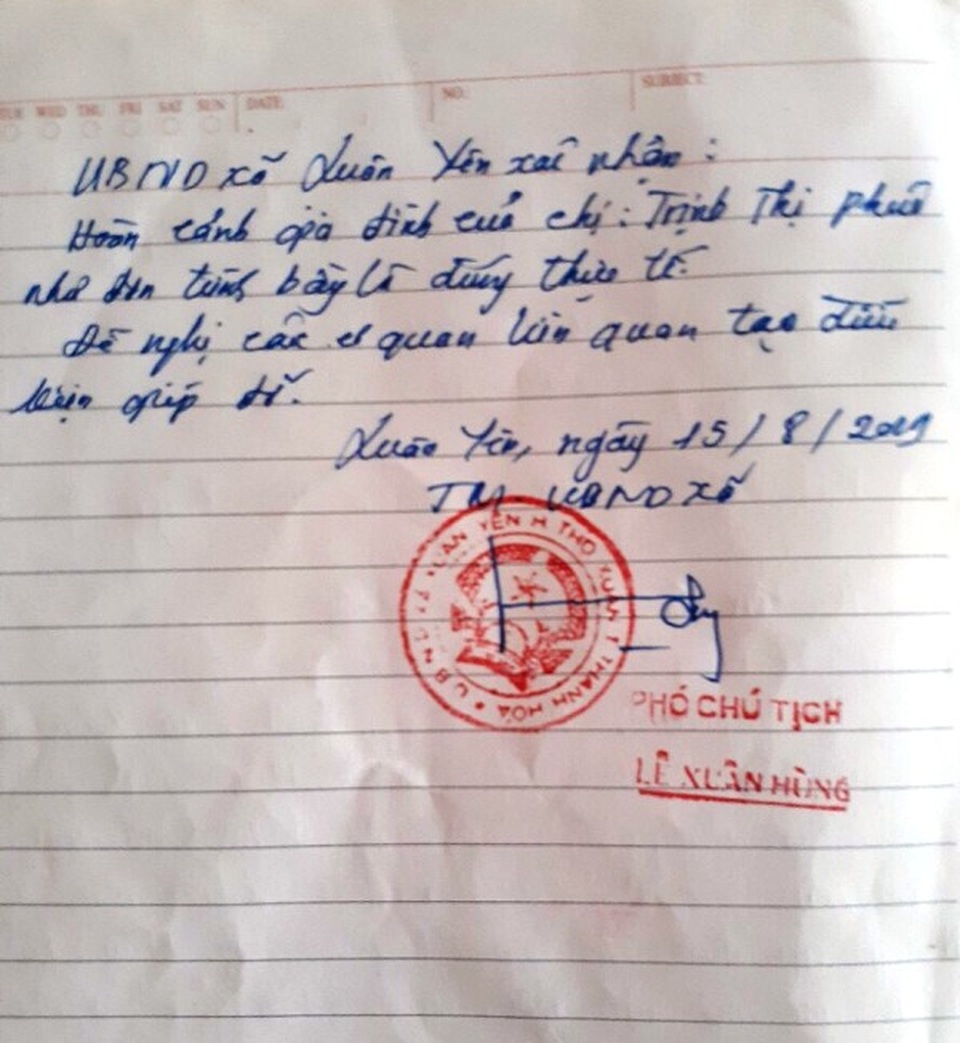 TUE WED THU FRI SAT SUN DATE: NO.: SUBJECT:
UBND xã Xuân Yên xác nhận :
Hoàn cảnh gia đình của chị : Trịnh Thị
như đơn trình bày là đúng thực tế.
Đề nghị các cơ quan liên quan tạo điều
kiện giúp đỡ.
Xuân Yên, ngày 15/8/2019
TM. UBND xã
U.B.N.D XÃ XUÂN YÊN H. THỌ XUÂN T. THANH HÓA
PHÓ CHỦ TỊCH
LÊ XUÂN HÙNG